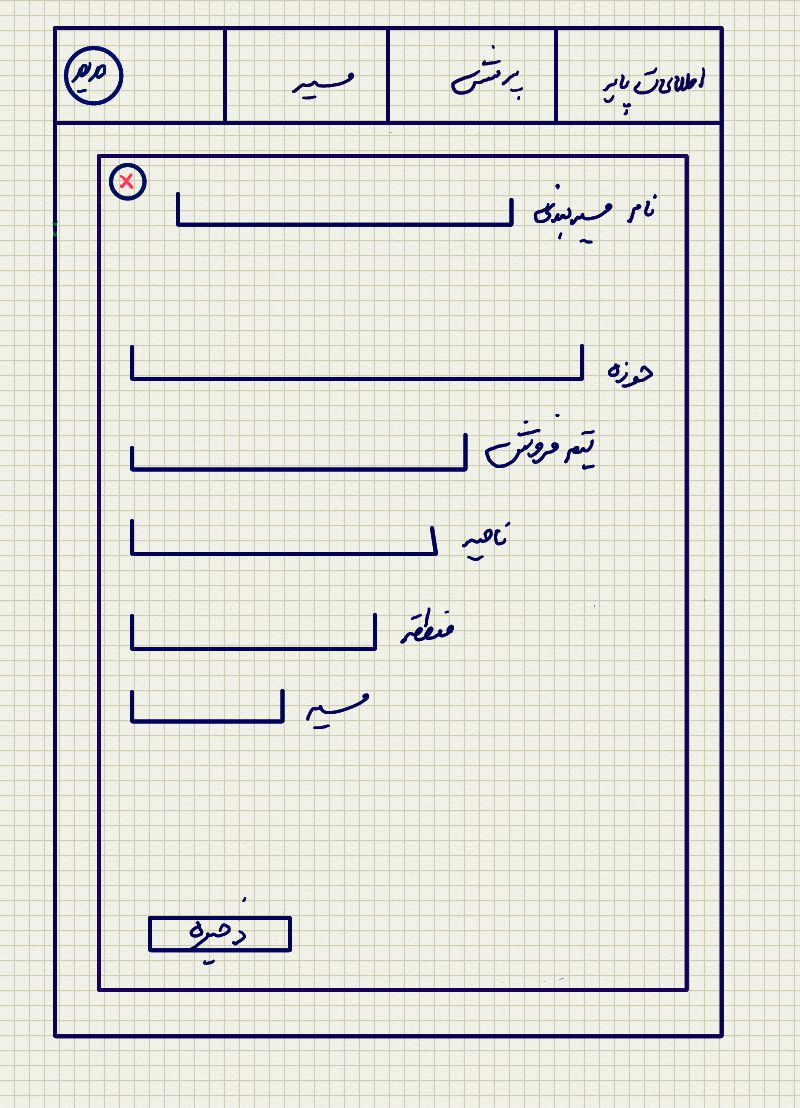 اطلاعات پایه
پرسش
مسیر
مدیر
نام مسیربندی
حوزه
تیم فروش
ناحیه
منطقه
مسیر
ذخیره